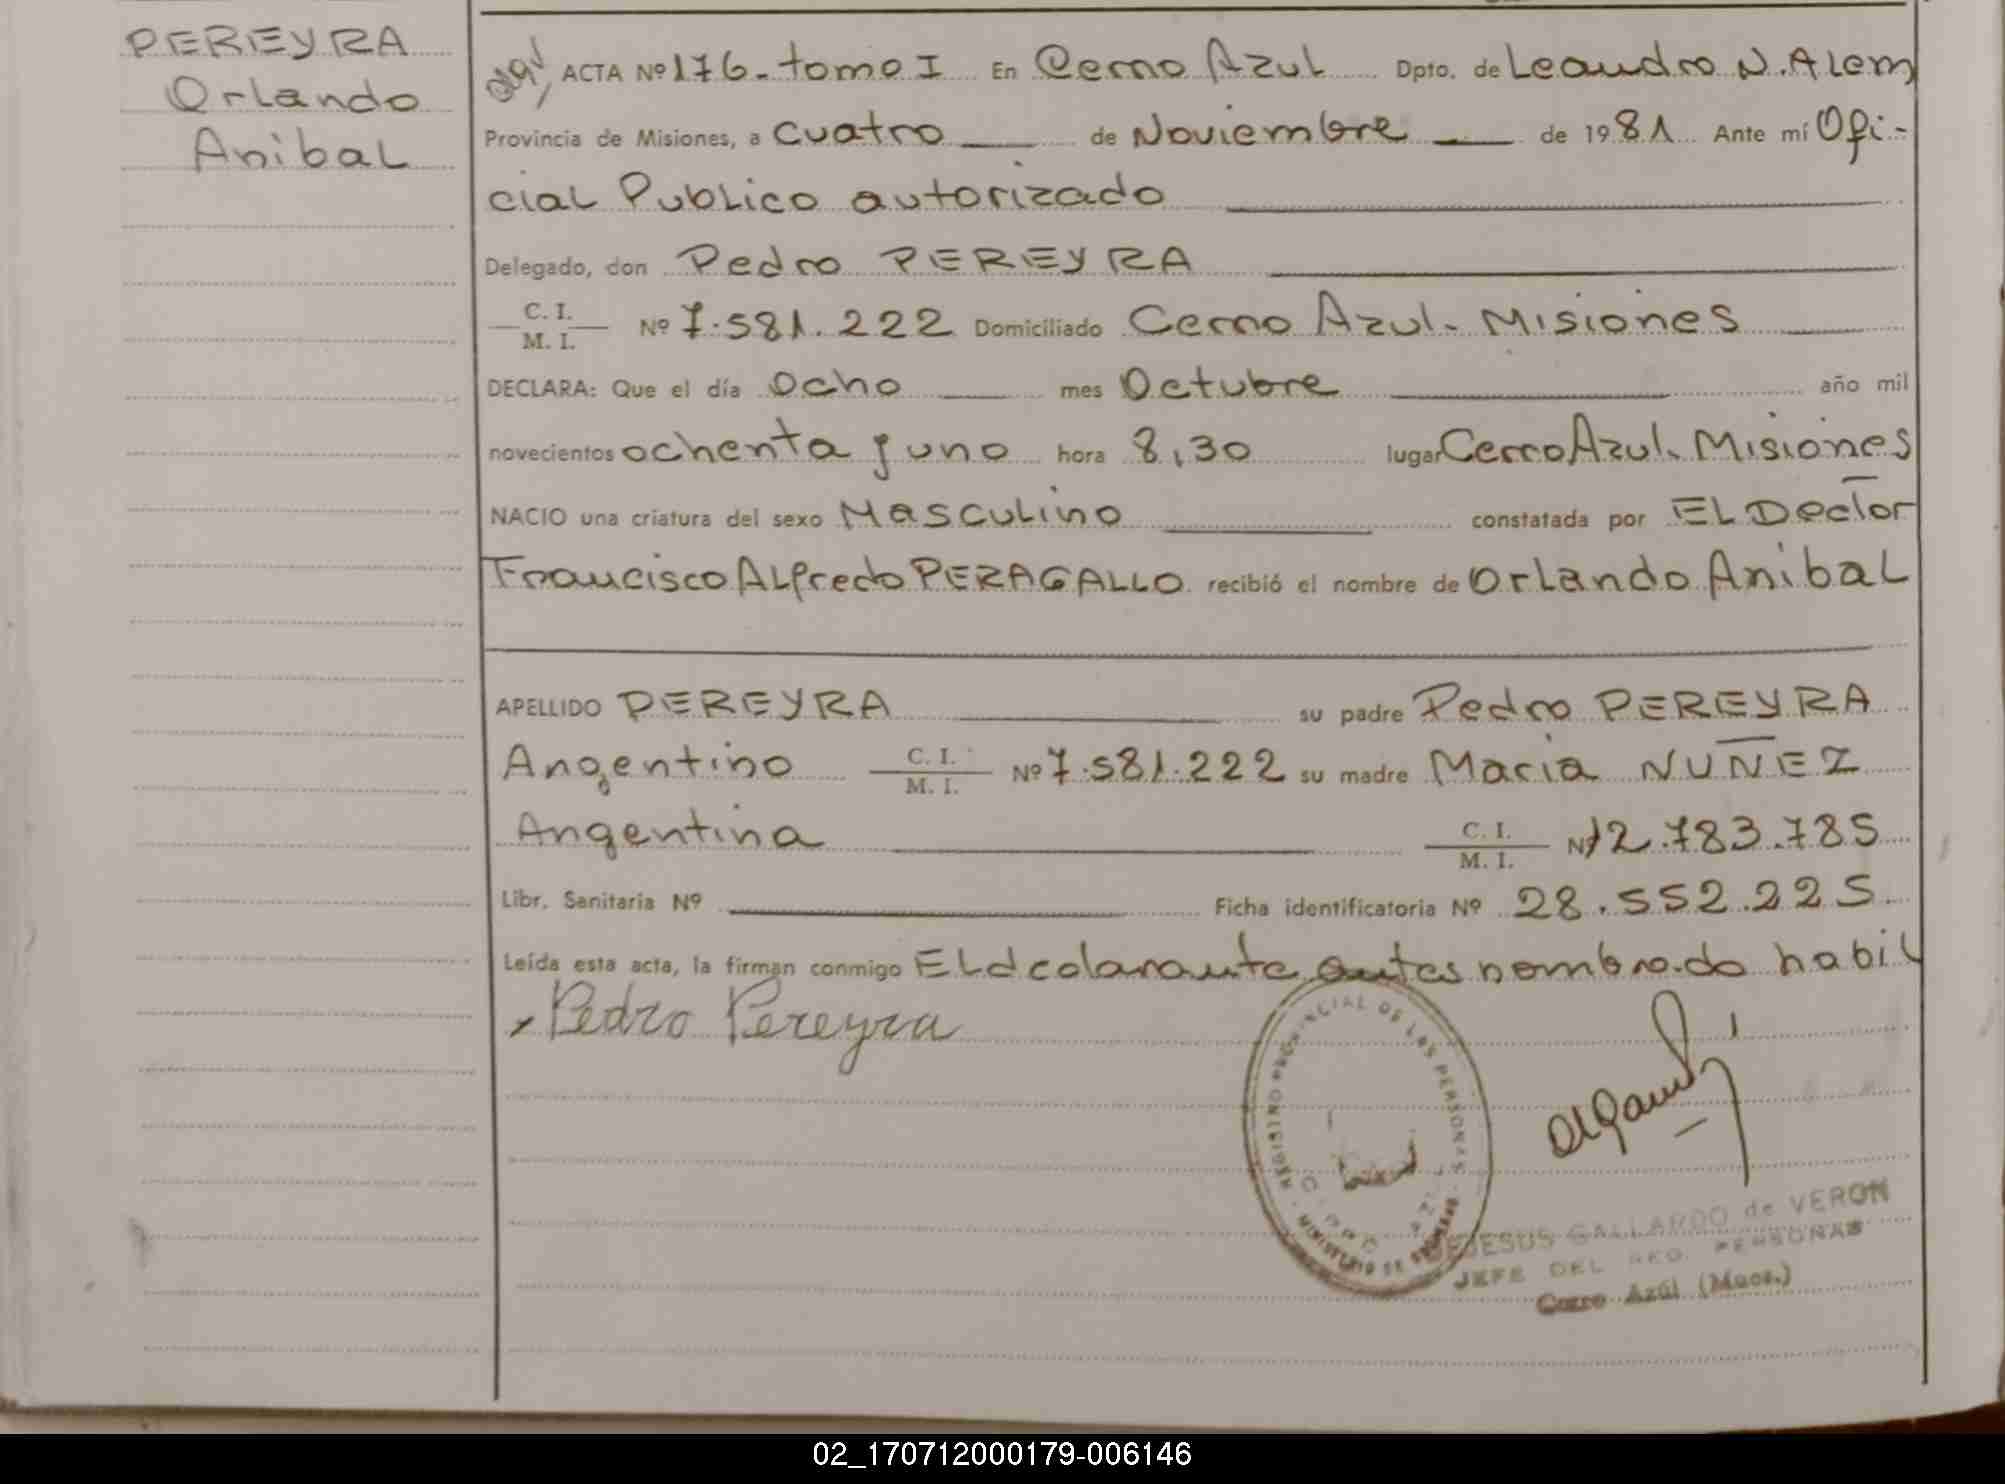 PEREYRA
Orlando
Anibal
ACTA Nº 176. tomo I En Cerro Azul Dpto. de Leandro N. Alem
Provincia de Misiones, a cuatro de Noviembre de 1981 Ante mí Ofi-
cial Publico autorizado
Delegado, don Pedro PEREYRA
C. I.
M. I. Nº 7.581.222 Domiciliado Cerro Azul. Misiones
DECLARA: Que el día ocho mes Octubre año mil
novecientos ochenta y uno hora 8,30 lugar Cerro Azul. Misiones
NACIO una criatura del sexo Masculino constatada por EL Doctor
Francisco ALfredo PERAGALLO recibió el nombre de Orlando Anibal
APELLIDO PEREYRA su padre Pedro PEREYRA
Argentino C. I.
M. I. Nº 7.581.222 su madre Maria NUÑEZ
Argentina C. I.
M. I. Nº 12.783.785
Libr. Sanitaria Nº Ficha identificatoria Nº 28.552.225
Leída esta acta, la firman conmigo EL declarante antes nombrado habil
Pedro Pereyra
REGISTRO PROVINCIAL DE LAS PERSONAS
MINISTERIO DE GOBIERNO
JESUS GALLARDO de VERON
JEFE DEL REG. PERSONAS
Cerro Azúl (Mnes.)
02_170712000179-006146